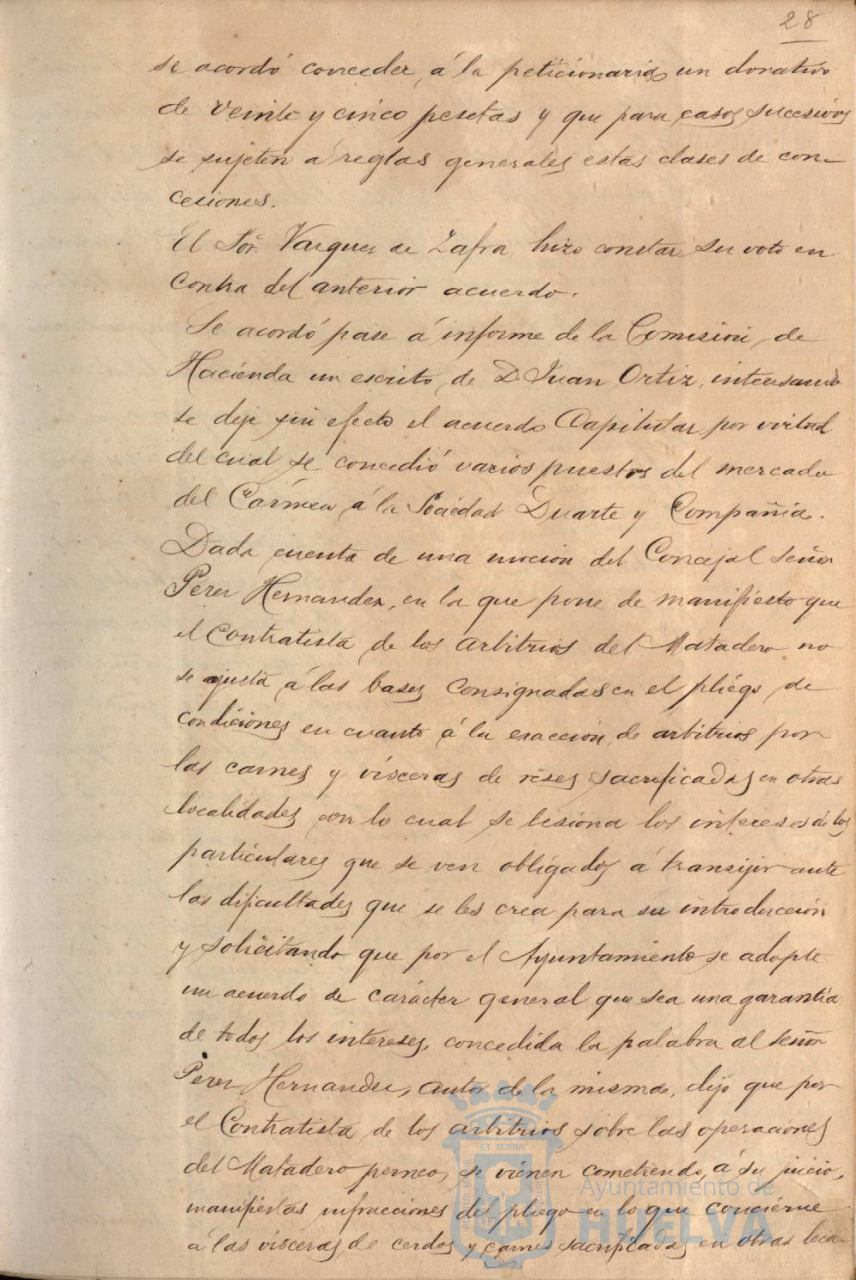 28
se acordó conceder, á la peticionaria, un donativo
de veinte y cinco pesetas y que para casos sucesivos
se sujeten á reglas generales estas clases de con-
cesiones.
El Sor. Vazquez de Zafra, hizo constar su voto en
contra del anterior acuerdo.
Se acordó pase á informe de la Comisión, de
Hacienda un escrito, de D. Juan Ortiz, interesando
se deje sin efecto el acuerdo Capitular por virtud
del cual se concedió varios puestos del mercado
del Cármen á la Sociedad Duarte y Compañia.
Dada cuenta de una moción del Concejal señor
Perez Hernandez, en la que pone de manifiesto que
el Contratista, de los arbitrios del Matadero no
se ajusta á las bases consignadas en el pliego de
condiciones en cuanto á la exacción, de arbitrios por
las carnes y vísceras de reses sacrificadas en otras
localidades con lo cual se lesiona los intereses de los
particulares que se ven obligados á transijir ante
las dificultades que se les crea para su introducción
y solicitando que por el Ayuntamiento se adopte
un acuerdo de carácter general que sea una garantía
de todos los intereses, concedida la palabra al señor
Perez Hernandez, autor de la misma, dijo que por
el Contratista, de los arbitrios sobre las operaciones
del Matadero perneo, se vienen cometiendo, á su juicio,
manifiestas infracciones del pliego en lo que concierne
á las vísceras de cerdos y carnes sacrificadas en otras loca-
ET TERRA
Ayuntamiento de
HUELVA